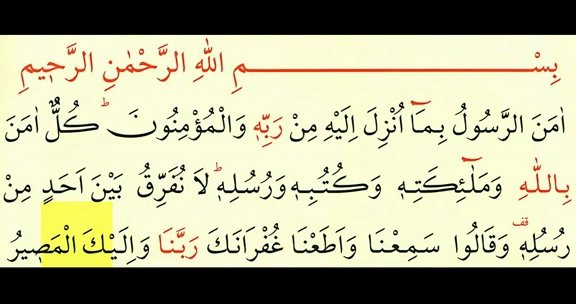 بِسْمِ اللّٰهِ الرَّحْمٰنِ الرَّح۪يمِ
اٰمَنَ الرَّسُولُ بِمَٓا اُنْزِلَ اِلَيْهِ مِنْ رَبِّه۪ وَالْمُؤْمِنُونَۜ كُلٌّ اٰمَنَ
بِاللّٰهِ وَمَلٰٓئِكَتِه۪ وَكُتُبِه۪ وَرُسُلِه۪ۜ لَا نُفَرِّقُ بَيْنَ اَحَدٍ مِنْ
رُسُلِه۪ۚ قف وَقَالُوا سَمِعْنَا وَاَطَعْنَا غُفْرَانَكَ رَبَّنَا وَاِلَيْكَ الْمَص۪يرُ